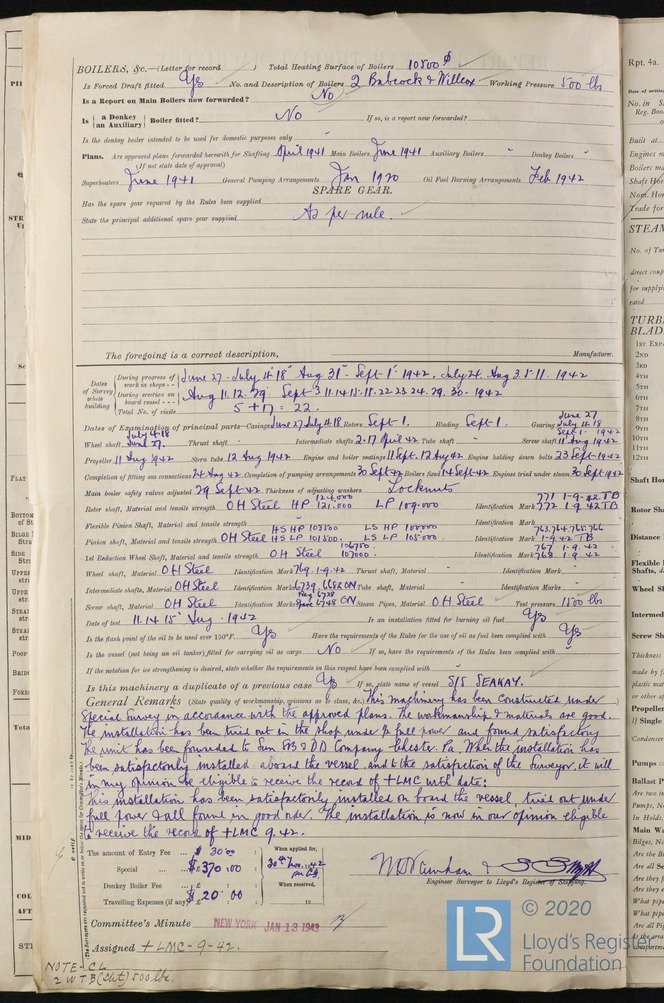 BOILERS, &c.—(Letter for record ) Total Heating Surface of Boilers 10800
Is Forced Draft fitted Yes No. and Description of Boilers 2 Babcock & Willcox Working Pressure 500 lbs
Is a Report on Main Boilers now forwarded? No
Is {a Donkey / an Auxiliary} Boiler fitted? No If so, is a report now forwarded?
Is the donkey boiler intended to be used for domestic purposes only
Plans. Are approved plans forwarded herewith for Shafting April 1941 Main Boilers June 1941 Auxiliary Boilers - Donkey Boilers -
(If not state date of approval)
Superheaters June 1941 General Pumping Arrangements Jan 1920 Oil Fuel Burning Arrangements Feb 1942
SPARE GEAR.
Has the spare gear required by the Rules been supplied
State the principal additional spare gear supplied As per rule.
The foregoing is a correct description, Manufacturer.
Dates of Survey while building
During progress of work in shops - - June 27 - July 4. 18 Aug 31 - Sept 1 - 1942. July 24. Aug 3. 5. 11. 1942
During erection on board vessel - - - Aug 11. 12. 29 Sept 3. 11. 14. 15. 18. 22 23 24. 29. 30. 1942
Total No. of visits 5 + 17 = 22.
Dates of Examination of principal parts—Casings June 27 July 4.18 Rotors Sept 1. Blading Sept 1. Gearing June 27 July 4.18 Sept 1. 1942
Wheel shaft July 4.18 June 27. Thrust shaft - Intermediate shafts 2.17 April 42 Tube shaft - Screw shaft 11 Aug 1942
Propeller 11 Aug 1942 Stern tube 12 Aug 1942 Engine and boiler seatings 11 Sept. 12 Aug 42 Engine holding down bolts 23 Sept 1942
Completion of fitting sea connections 24 Aug 42 Completion of pumping arrangements 30 Sept 42 Boilers fixed 14 Sept 42 Engines tried under steam 30 Sept 1942
Main boiler safety valves adjusted 29 Sept 42 Thickness of adjusting washers Locknuts
Rotor shaft, Material and tensile strength OH Steel HP 121.000 LP 109.000 Identification Mark 771 1-9-42 TB 772 1.9.42 TB
Flexible Pinion Shaft, Material and tensile strength Identification Mark
Pinion shaft, Material and tensile strength OH Steel HS HP 103500 HS LP 101500. LS HP 100000 LS LP 105000 Identification Mark 763.764.765.766 1-9-42 TB
1st Reduction Wheel Shaft, Material and tensile strength OH Steel 107000 Identification Mark 767 1-9-42 768 1.9.42
Wheel shaft, Material OH Steel Identification Mark 769.1-9.42 Thrust shaft, Material - Identification Mark -
Intermediate shafts, Material OH Steel Identification Marks 6739. 6682 CN Tube shaft, Material - Identification Marks -
Screw shaft, Material OH Steel Identification Marks Steam Pipes, Material OH Steel Test pressure 1500 lbs
Date of test 11.14 15 Aug. 1942 Is an installation fitted for burning oil fuel Yes
Is the flash point of the oil to be used over 150°F. Yes Have the requirements of the Rules for the use of oil as fuel been complied with Yes
Is the vessel (not being an oil tanker) fitted for carrying oil as cargo No If so, have the requirements of the Rules been complied with -
If the notation for ice strengthening is desired, state whether the requirements in this respect have been complied with -
Is this machinery a duplicate of a previous case Yes If so, state name of vessel S/S SEAKAY.
General Remarks (State quality of workmanship, opinions as to class, &c.) This machinery has been constructed under
Special Survey in accordance with the approved plans. The workmanship & materials are good.
The installation has been tried out in the shop under full power and found satisfactory
The unit has been forwarded to Sun SB & DD Company Chester. Pa. When the installation has
been satisfactorily installed aboard the vessel, and to the satisfaction of the Surveyor, it will
in my opinion be eligible to receive the record of +LMC with date:
This installation has been satisfactorily installed on board the vessel, tried out under
full power & all found in good order. The installation is now in our opinion eligible
to receive the record of +LMC 9.42.
The amount of Entry Fee ... $ 30.00 : When applied for,
Special ... $370.00 : 30th Nov. 1942
Donkey Boiler Fee ... £ : When received,
Travelling Expenses (if any) $ 20.00 19
Engineer Surveyor to Lloyd's Register of Shipping.
Committee's Minute NEW YORK JAN 13 1943
Assigned + LMC - 9-42.
NOTE - CL
2 W.T.B (Sht) 500 lbs.
Rpt. 4a.
© 2020
LR
Lloyd's Register
Foundation